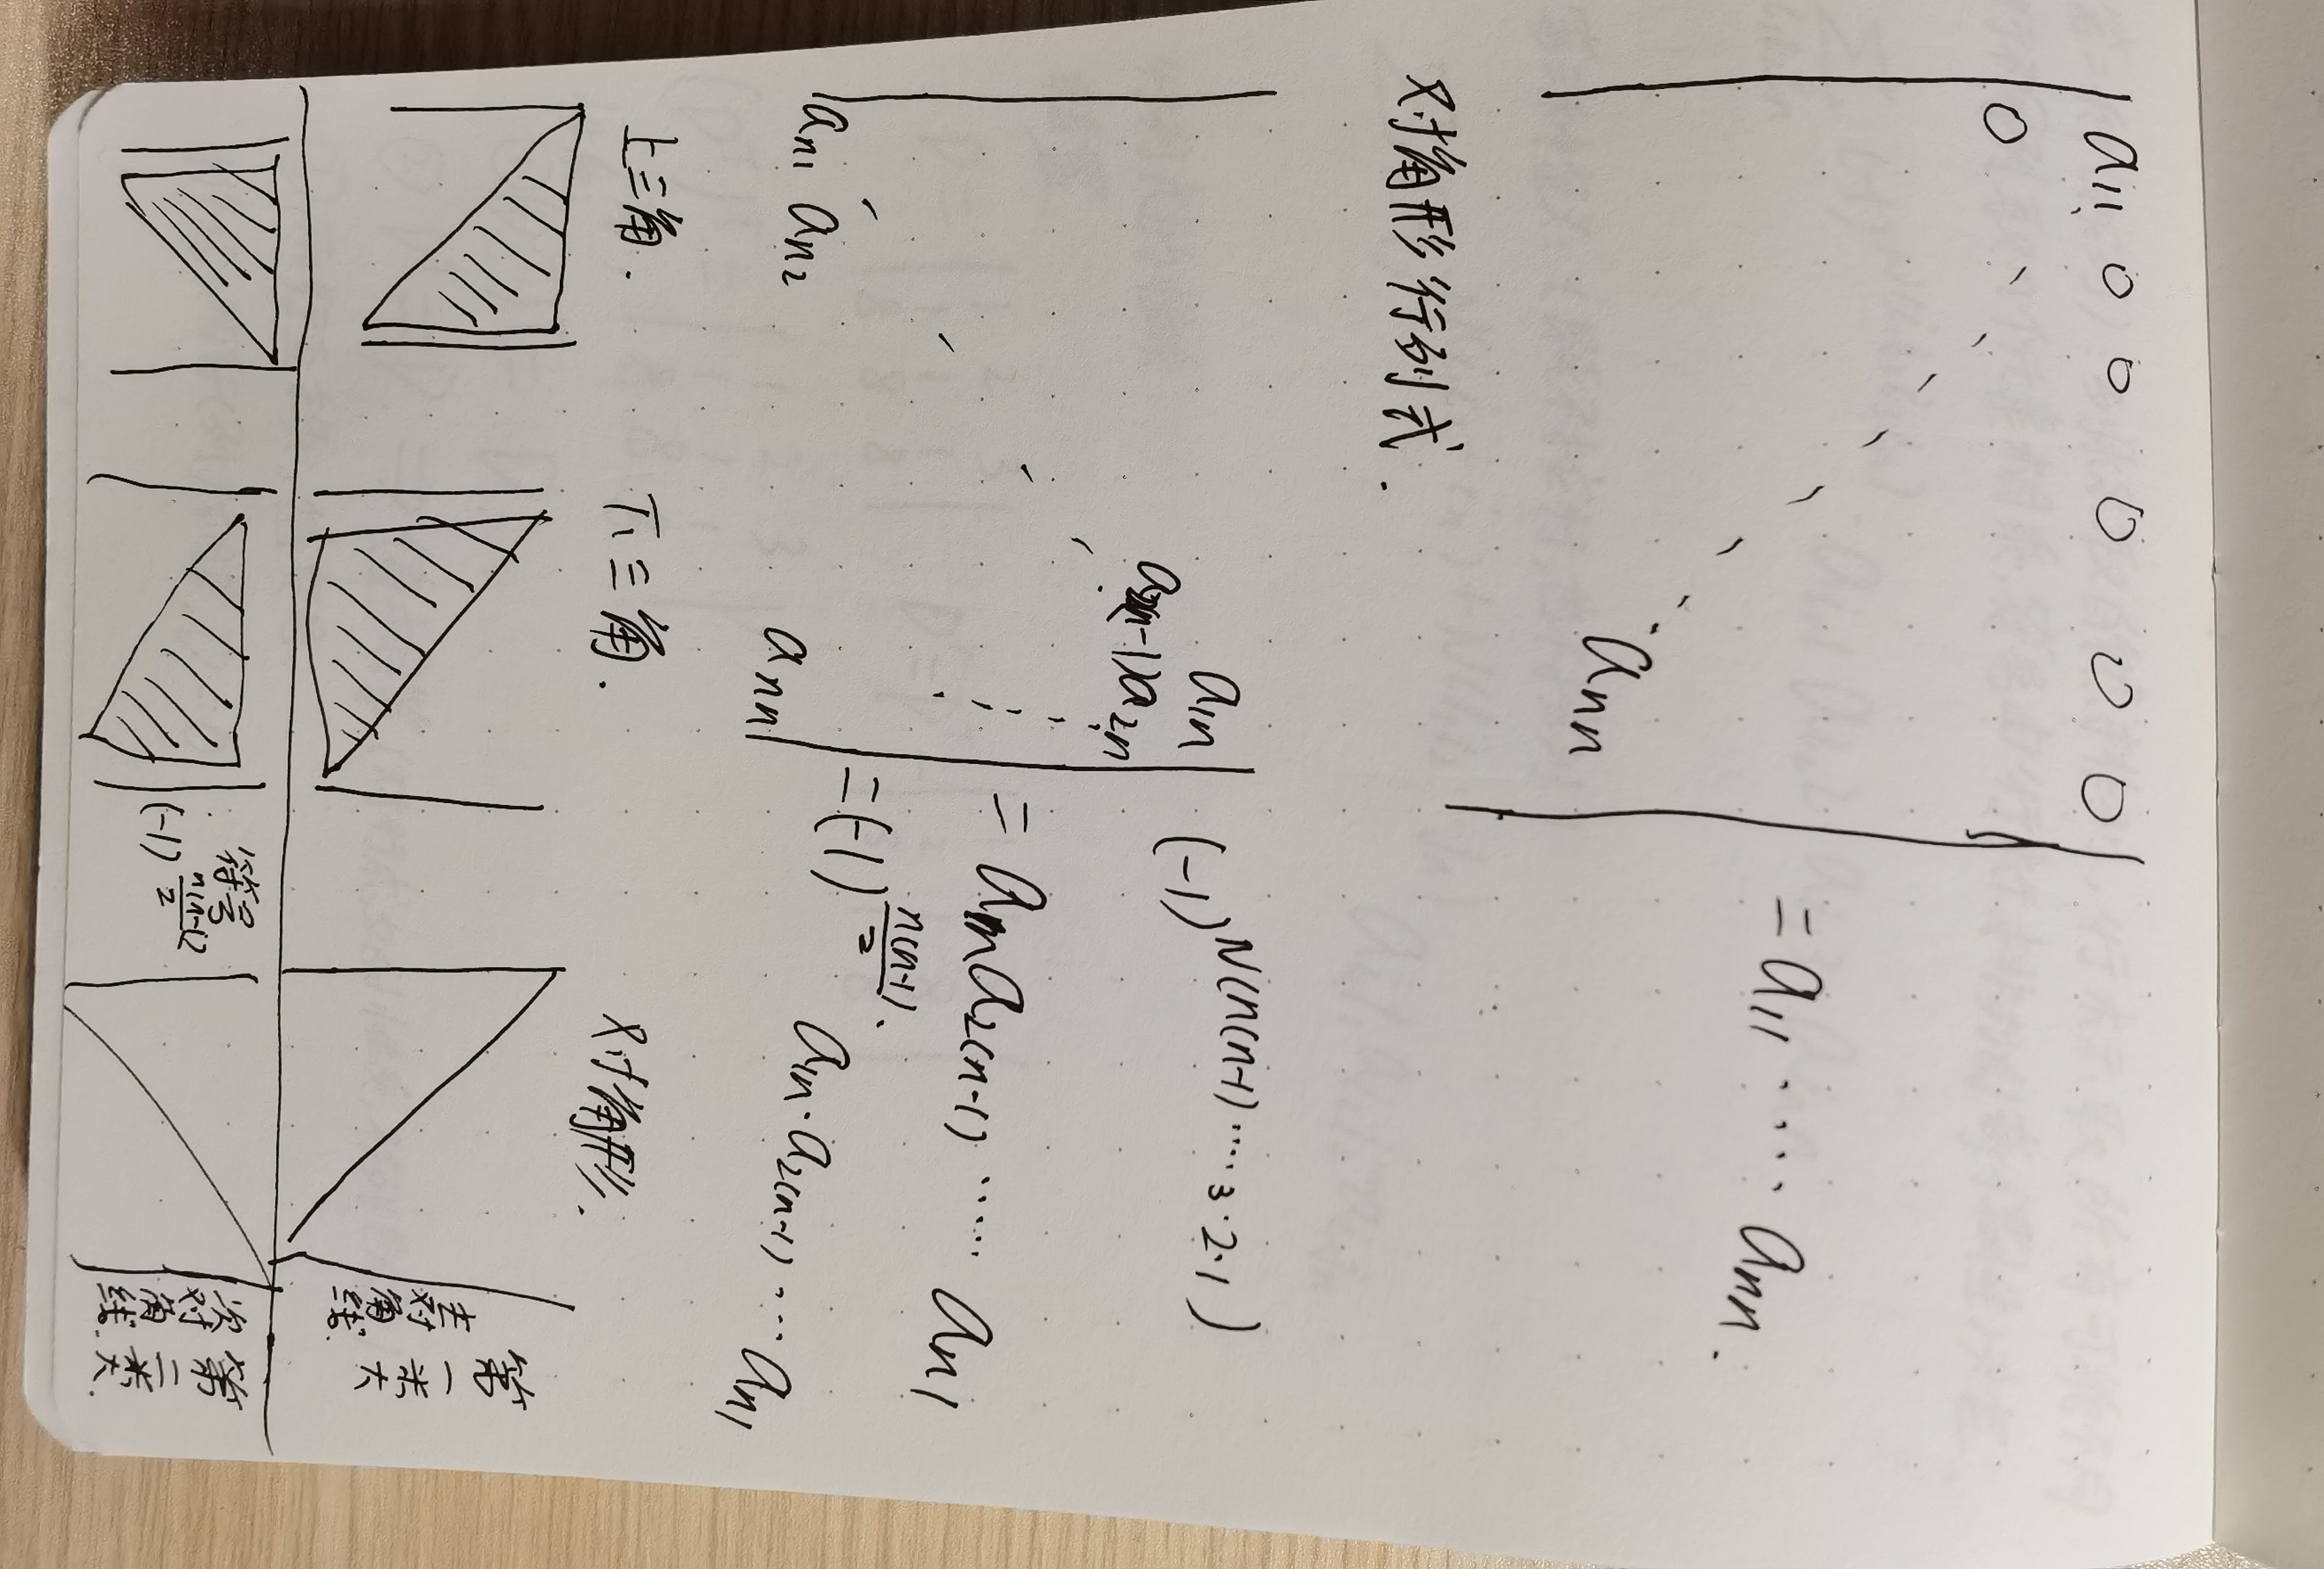 a₁₁ 0 0 0 0 0
0
aₙₙ
= a₁₁ ⋯ aₙₙ.
对角形行列式.
a₁ₙ
a₂₍ₙ₋₁₎ a₂ₙ
aₙ₁ aₙ₂ aₙₙ
(-1)^N(n(n-1)……3·2·1)
= a₁ₙa₂₍ₙ₋₁₎ …… aₙ₁
= (-1)^(n(n-1)/2) · a₁ₙ·a₂₍ₙ₋₁₎ … aₙ₁
上三角. 下三角. 对角形.
主对角线. 第一类
符号 (-1)^(n(n-1)/2)
次对角线. 第二类.